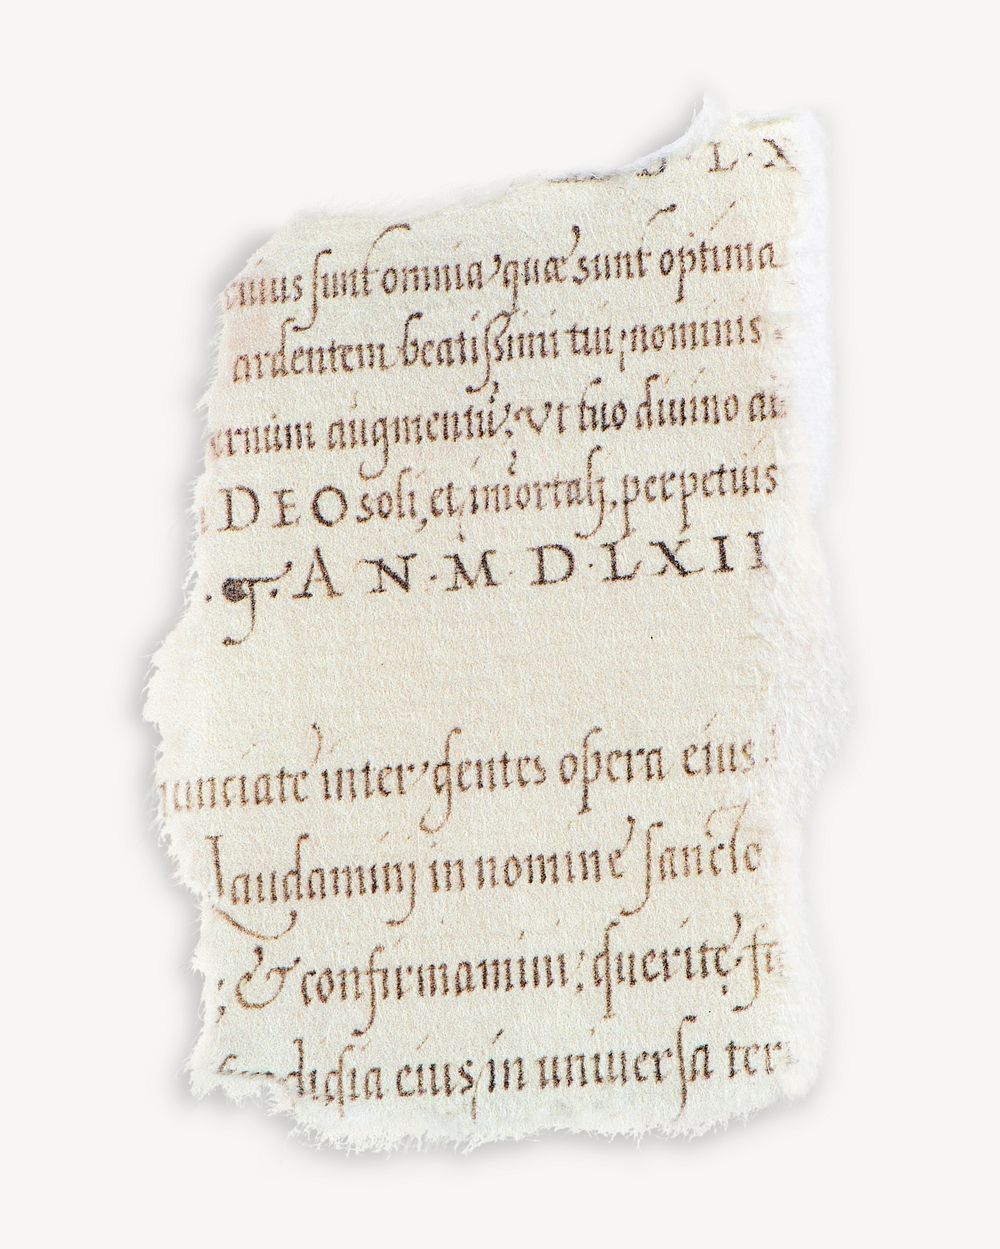 D · L · X
cuius sunt omnia, quæ sunt optima
ardentem beatissimi tui nominis
ernum augmentũ; Vt tuo diuino au
DEO soli, et imortalj. perpetuis
AN · M D · LXII
nunciate inter gentes opera eius
Laudaminj in nomine sancto
; & confirmamini; querite f
iudicia eius in uniuersa terr